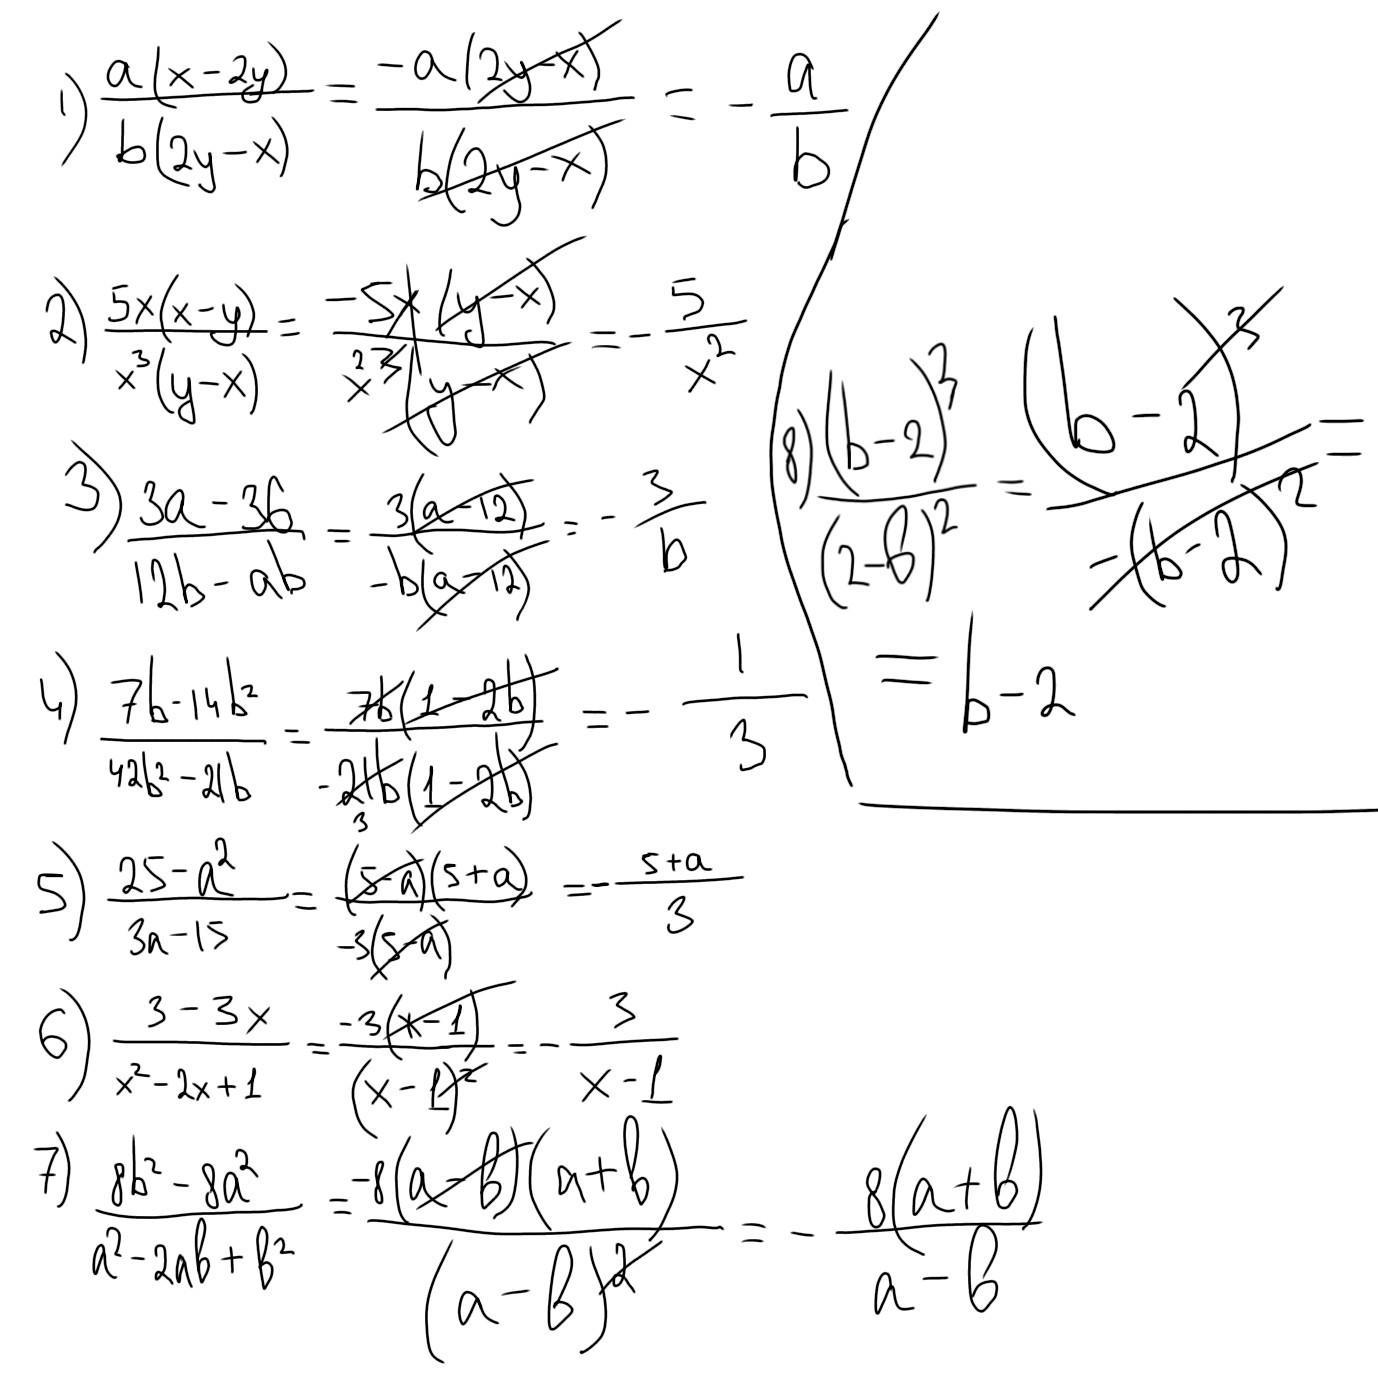 1) a(x-2y)/b(2y-x) = -a(2y-x)/b(2y-x) = - a/b
2) 5x(x-y)/x³(y-x) = -5x(y-x)/x² ³(y-x) = - 5/x²
3) 3a-36/12b-ab = 3(a-12)/-b(a-12) = - 3/b
4) 7b-14b²/42b²-21b = 7b(1-2b)/-21b(1-2b) 3 = - 1/3
5) 25-a²/3a-15 = (5-a)(5+a)/-3(5-a) = - 5+a/3
6) 3-3x/x²-2x+1 = -3(x-1)/(x-1)² = - 3/x-1
7) 8b²-8a²/a²-2ab+b² = -8(a-b)(a+b)/(a-b)² = - 8(a+b)/a-b
8) (b-2)³/(2-b)² = (b-2)³/-(b-2)² =
= b-2